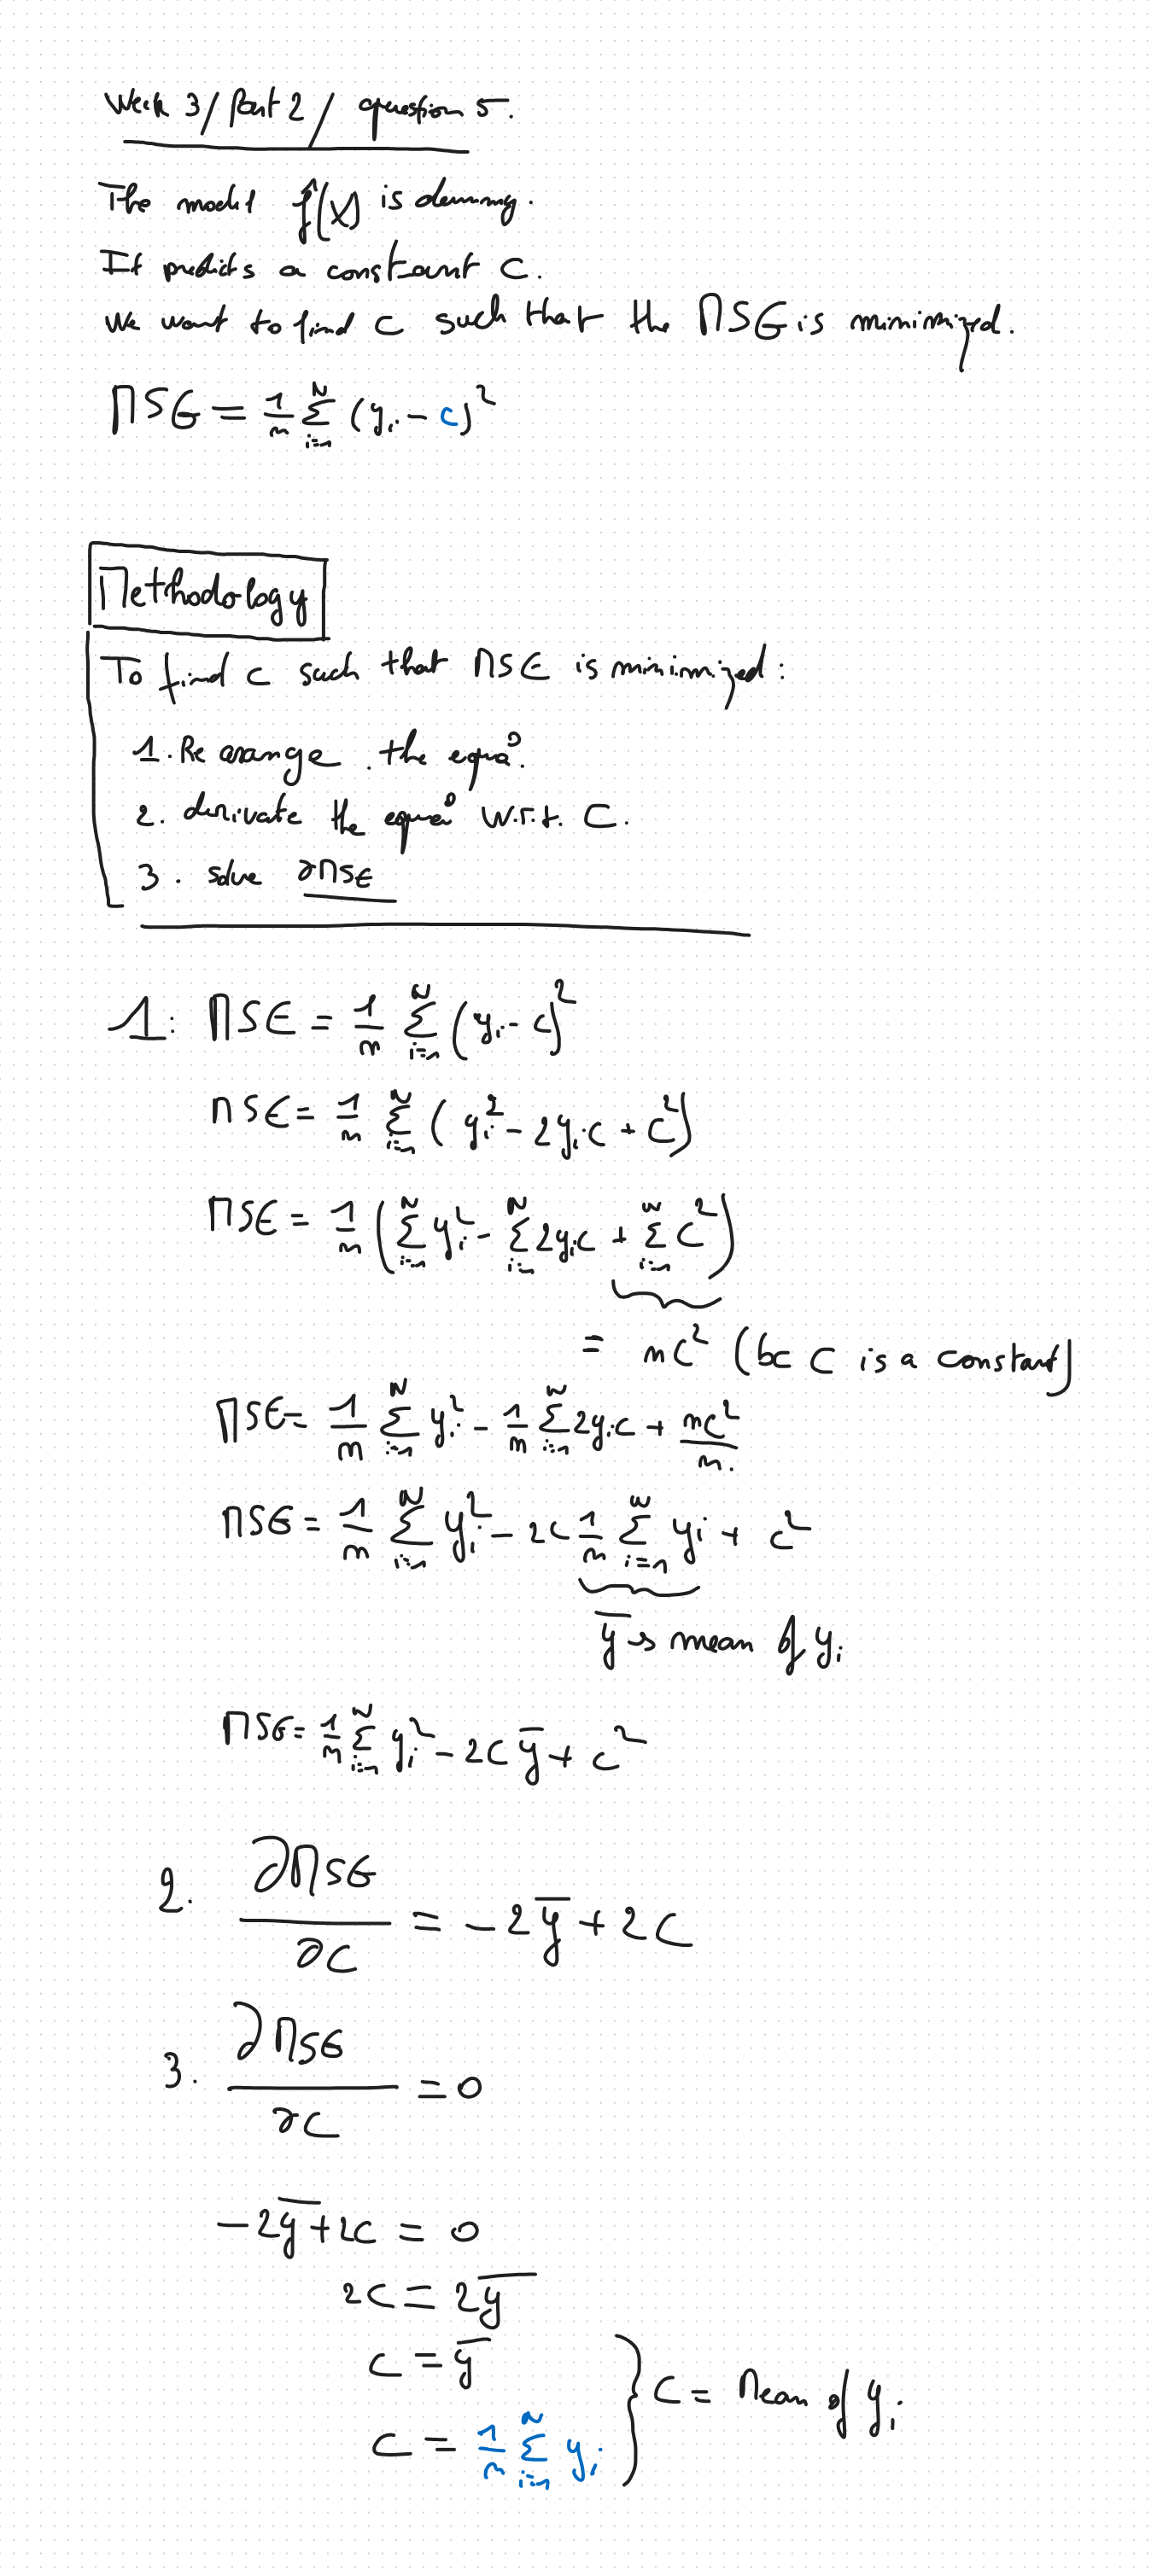 Week 3/Part 2/ question 5.
The model f̂(X) is dummy.
It predicts a constant C.
We want to find C such that the MSE is minimized.
MSE = 1/n Σ_{i=1}^{N} (y_i - c)²
Methodology
To find c such that MSE is minimized:
1. Re arange the equa°.
2. derivate the equa° w.r.t. C.
3. solve ∂MSE
1: MSE = 1/n Σ_{i=1}^{N} (y_i - c)²
MSE = 1/n Σ_{i=1}^{N} (y_i² - 2y_i c + c²)
MSE = 1/n (Σ_{i=1}^{N} y_i² - Σ_{i=1}^{N} 2y_i c + Σ_{i=1}^{N} c²)
= nc² (bc C is a constant)
MSE = 1/n Σ_{i=1}^{N} y_i² - 1/n Σ_{i=1}^{N} 2y_i c + nc²/n.
MSE = 1/n Σ_{i=1}^{N} y_i² - 2c 1/n Σ_{i=1}^{N} y_i + c²
ȳ → mean of y_i
MSE = 1/n Σ_{i=1}^{N} y_i² - 2c ȳ + c²
2. ∂MSE/∂C = -2ȳ + 2c
3. ∂MSE/∂C = 0
-2ȳ + 2c = 0
2c = 2ȳ
c = ȳ
c = 1/n Σ_{i=1}^{N} y_i
C = Mean of y_i